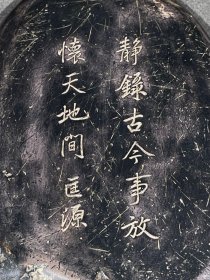 静錄古今事放
懷天地間 匡源